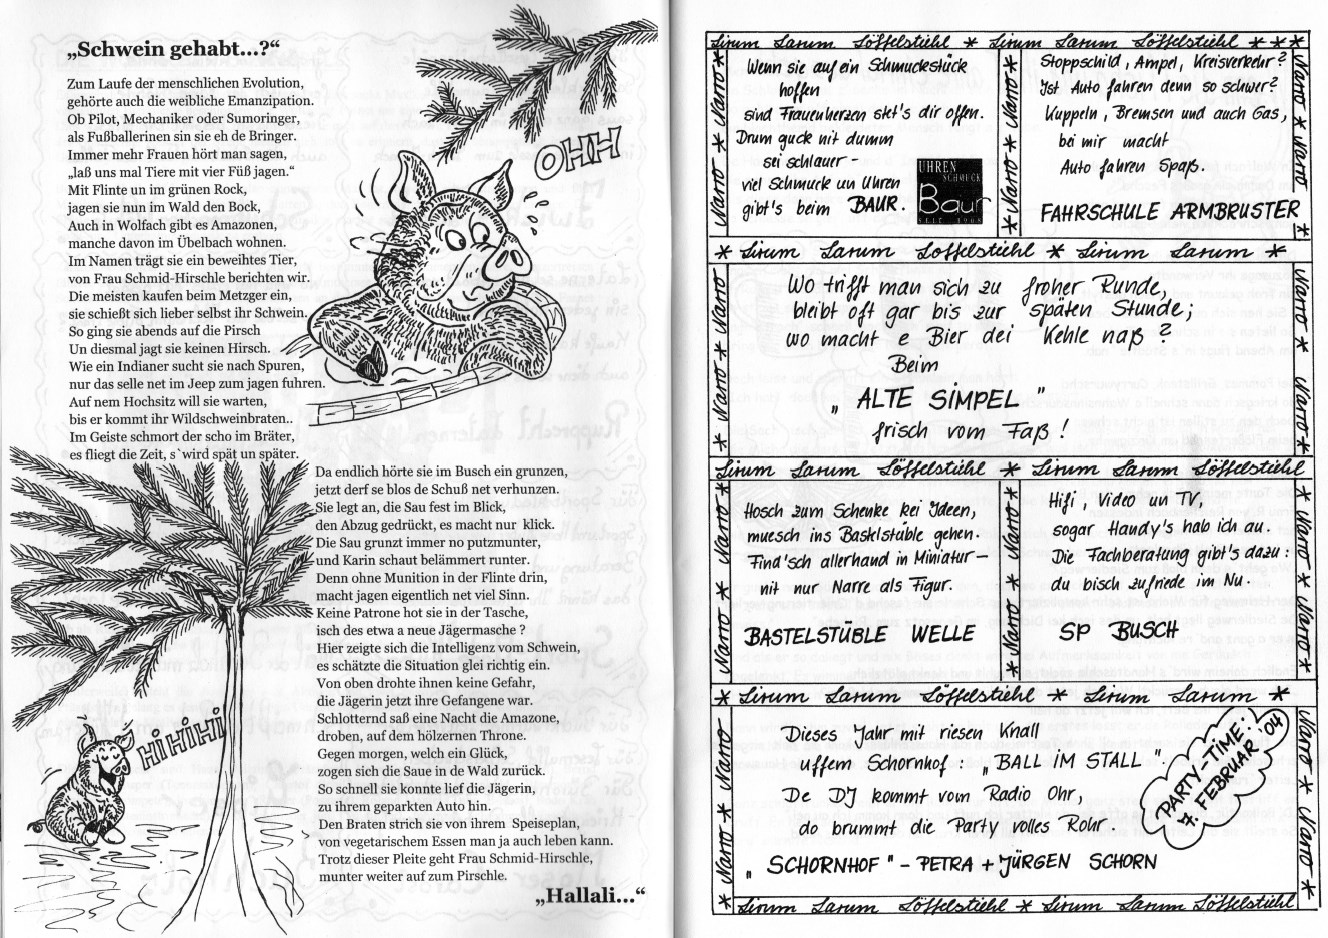 „Schwein gehabt...?“
Zum Laufe der menschlichen Evolution,
gehörte auch die weibliche Emanzipation.
Ob Pilot, Mechaniker oder Sumoringer,
als Fußballerinen sin sie eh de Bringer.
Immer mehr Frauen hört man sagen,
„laß uns mal Tiere mit vier Füß jagen.“
Mit Flinte un im grünen Rock,
jagen sie nun im Wald den Bock,
Auch in Wolfach gibt es Amazonen,
manche davon im Übelbach wohnen.
Im Namen trägt sie ein beweihtes Tier,
von Frau Schmid-Hirschle berichten wir.
Die meisten kaufen beim Metzger ein,
sie schießt sich lieber selbst ihr Schwein.
So ging sie abends auf die Pirsch
Un diesmal jagt sie keinen Hirsch.
Wie ein Indianer sucht sie nach Spuren,
nur das selle net im Jeep zum jagen fuhren.
Auf nem Hochsitz will sie warten,
bis er kommt ihr Wildschweinbraten..
Im Geiste schmort der scho im Bräter,
es fliegt die Zeit, s`wird spät un später.
Da endlich hörte sie im Busch ein grunzen,
jetzt derf se blos de Schuß net verhunzen.
Sie legt an, die Sau fest im Blick,
den Abzug gedrückt, es macht nur klick.
Die Sau grunzt immer no putzmunter
und Karin schaut belämmert runter.
Denn ohne Munition in der Flinte drin,
macht jagen eigentlich net viel Sinn.
Keine Patrone hot sie in der Tasche,
isch des etwa a neue Jägermasche ?
Hier zeigte sich die Intelligenz vom Schwein,
es schätzte die Situation glei richtig ein.
Von oben drohte ihnen keine Gefahr,
die Jägerin jetzt ihre Gefangene war.
Schlotternd saß eine Nacht die Amazone,
droben, auf dem hölzernen Throne.
Gegen morgen, welch ein Glück,
zogen sich die Saue in de Wald zurück.
So schnell sie konnte lief die Jägerin,
zu ihrem geparkten Auto hin.
Den Braten strich sie von ihrem Speiseplan,
von vegetarischem Essen man ja auch leben kann.
Trotz dieser Pleite geht Frau Schmid-Hirschle,
munter weiter auf zum Pirschle.
„Hallali...“
OHH
HIHIHI
Lirum Larum Löffelstiehl * Lirum Larum Löffelstiehl * * *
Wenn sie auf ein Schmuckstück
hoffen
sind Frauenherzen skt's dir offen.
Drum guck nit dumm
sei schlauer –
viel Schmuck un Uhren
gibt's beim BAUR.
UHREN
SCHMUCK
Baur
SEIT 1908
* Narro * Narro *
* Narro * Narro *
Stoppschild, Ampel, Kreisverkehr?
Ist Auto fahren denn so schwer?
Kuppeln, Bremsen und auch Gas,
bei mir macht
Auto fahren Spaß.
FAHRSCHULE ARMBRUSTER
Narro * Narro *
* Lirum Larum Löffelstiehl * Lirum Larum Löffelstiehl *
Wo trifft man sich zu froher Runde,
bleibt oft gar bis zur späten Stunde,
wo macht e Bier dei Kehle naß?
Beim
„ALTE SIMPEL"
frisch vom Faß!
* Narro * Narro
Narro * Narro *
Lirum Larum Löffelstiehl * Lirum Larum Löffelstiehl
Hosch zum Schenke kei Ideen,
muesch ins Bastelstüble gehen.
Find'sch allerhand in Miniatur –
nit nur Narre als Figur.
BASTELSTÜBLE WELLE
* Narro * Narro *
* Narro * Narro *
Hifi, Video un TV,
sogar Handy's hab ich au.
Die Fachberatung gibt's dazu:
du bisch zufriede im Nu.
SP BUSCH
Narro * Narro *
* Lirum Larum Löffelstiehl * Lirum Larum *
Dieses Jahr mit riesen Knall
uffem Schornhof: „BALL IM STALL"
De DJ kommt vom Radio Ohr,
do brummt die Party volles Rohr.
„SCHORNHOF" – PETRA + JÜRGEN SCHORN
PARTY-TIME:
7. FEBRUAR '04
* Narro * Narro
Narro * Narro *
Lirum Larum Löffelstiehl * Lirum Larum Löffelstiehl